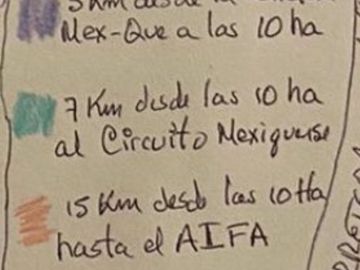 5 Km desde la
Mex-Que a las 10 ha
7 Km desde las 10 ha
al Circuito Mexiquense
15 Km desde las 10 Ha
hasta el AIFA